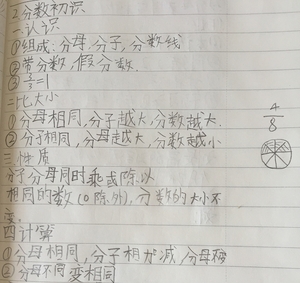 2分数初识
一认识
①组成:分母,分子,分数线
②带分数,假分数.
二比大小
①分母相同,分子越大,分数越大.
②分子相同,分母越大,分数越小
4
8
三.性质
分子分母同时乘或除以
相同的数(0除外),分数的大小不
变.
四计算
①分母相同,分子相加减,分母
②分母不同变相同